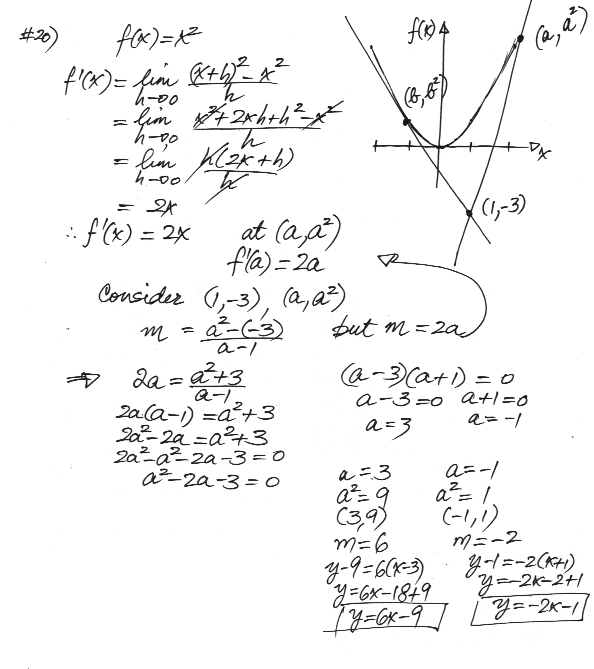 #20) f(x)=x²
f'(x)= lim h→0 ((x+h)² - x²)/h
= lim h→0 (x²+2xh+h²-x²)/h
= lim h→0 h(2x+h)/h
= 2x
∴ f'(x) = 2x at (a,a²)
f'(a)=2a
Consider (1,-3), (a,a²)
m = (a²-(-3))/(a-1) but m=2a
⇒ 2a = (a²+3)/(a-1)
2a(a-1) = a²+3
2a²-2a = a²+3
2a²-a²-2a-3=0
a²-2a-3=0
(a-3)(a+1) = 0
a-3=0 a+1=0
a=3 a=-1
a=3 a=-1
a²=9 a²=1
(3,9) (-1,1)
m=6 m=-2
y-9=6(x-3) y-1=-2(x+1)
y=6x-18+9 y=-2x-2+1
y=6x-9 y=-2x-1
f(x)
(a,a²)
(b,b²)
x
(1,-3)